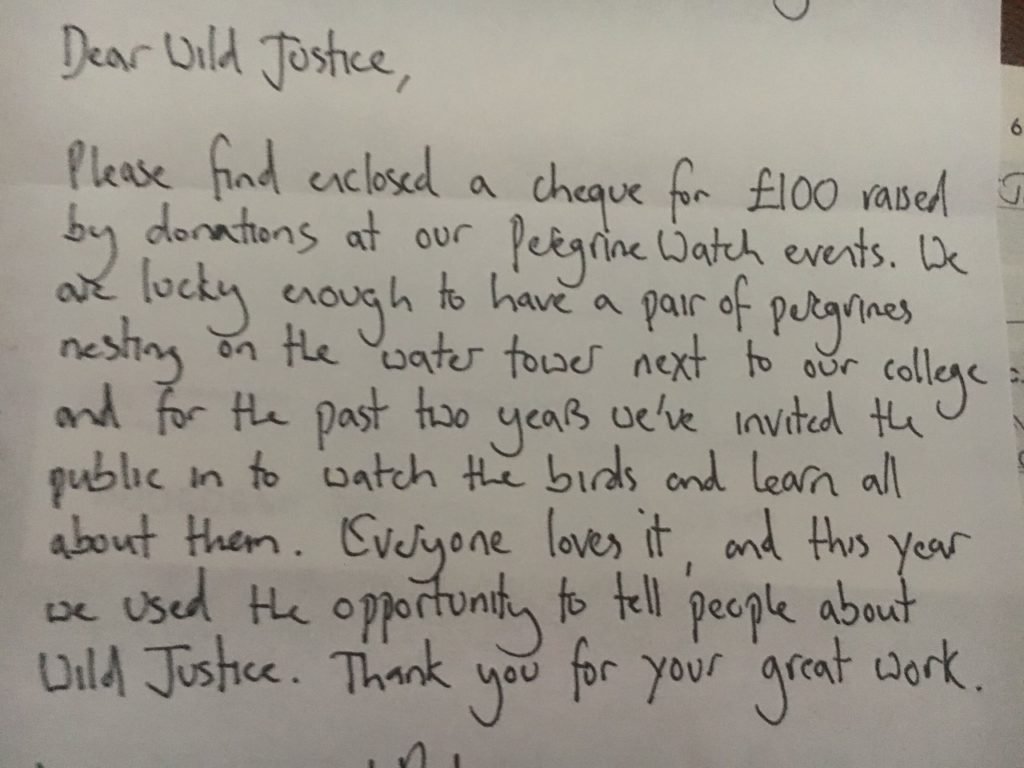 Dear Wild Justice,
Please find enclosed a cheque for £100 raised
by donations at our Peregrine Watch events. We
are lucky enough to have a pair of peregrines
nesting on the water tower next to our college
and for the past two years we've invited the
public in to watch the birds and learn all
about them. Everyone loves it, and this year
we used the opportunity to tell people about
Wild Justice. Thank you for your great work.
6